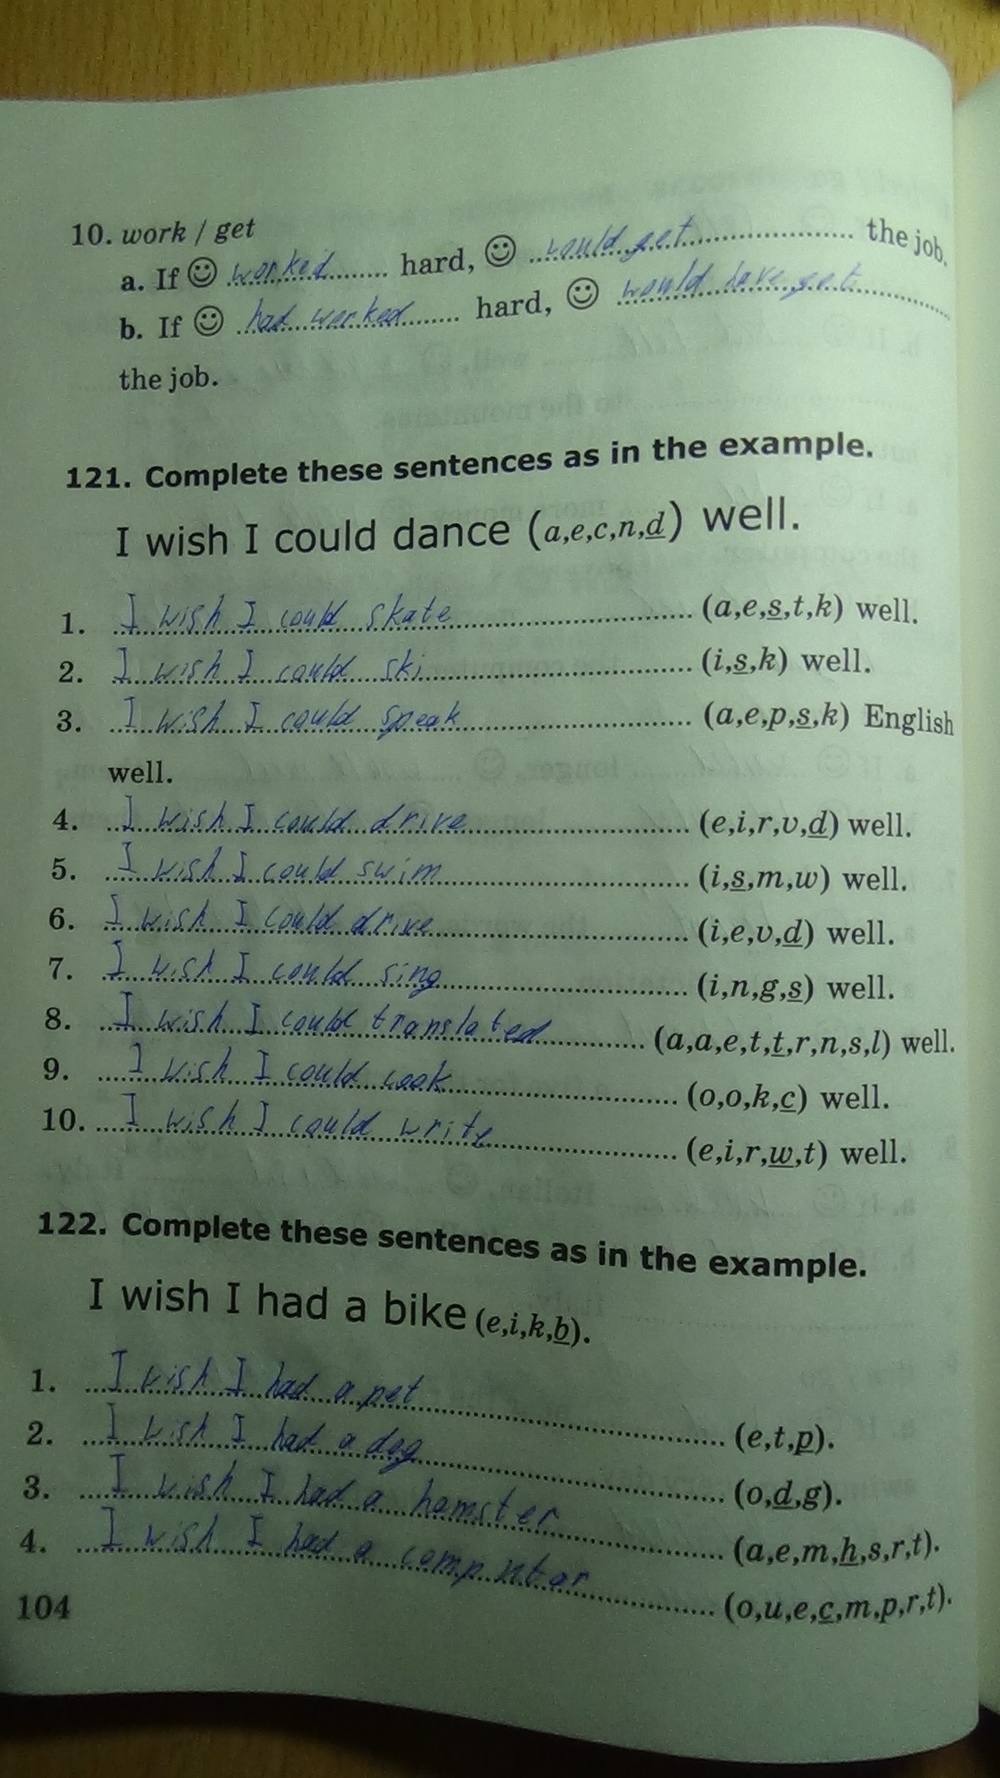 10. work / get
a. If ☺ worked hard, ☺ would get the job.
b. If ☺ had worked hard, ☺ would have get
the job.
121. Complete these sentences as in the example.
I wish I could dance (a,e,c,n,d) well.
1. I wish I could skate (a,e,s,t,k) well.
2. I wish I could ski (i,s,k) well.
3. I wish I could speak (a,e,p,s,k) English
well.
4. I wish I could drive (e,i,r,v,d) well.
5. I wish I could swim (i,s,m,w) well.
6. I wish I could drive (i,e,v,d) well.
7. I wish I could sing (i,n,g,s) well.
8. I wish I could translated (a,a,e,t,t,r,n,s,l) well.
9. I wish I could cook (o,o,k,c) well.
10. I wish I could write (e,i,r,w,t) well.
122. Complete these sentences as in the example.
I wish I had a bike (e,i,k,b).
1. I wish I had a pet (e,t,p).
2. I wish I had a dog (o,d,g).
3. I wish I had a hamster (a,e,m,h,s,r,t).
4. I wish I had a computer (o,u,e,c,m,p,r,t).
104